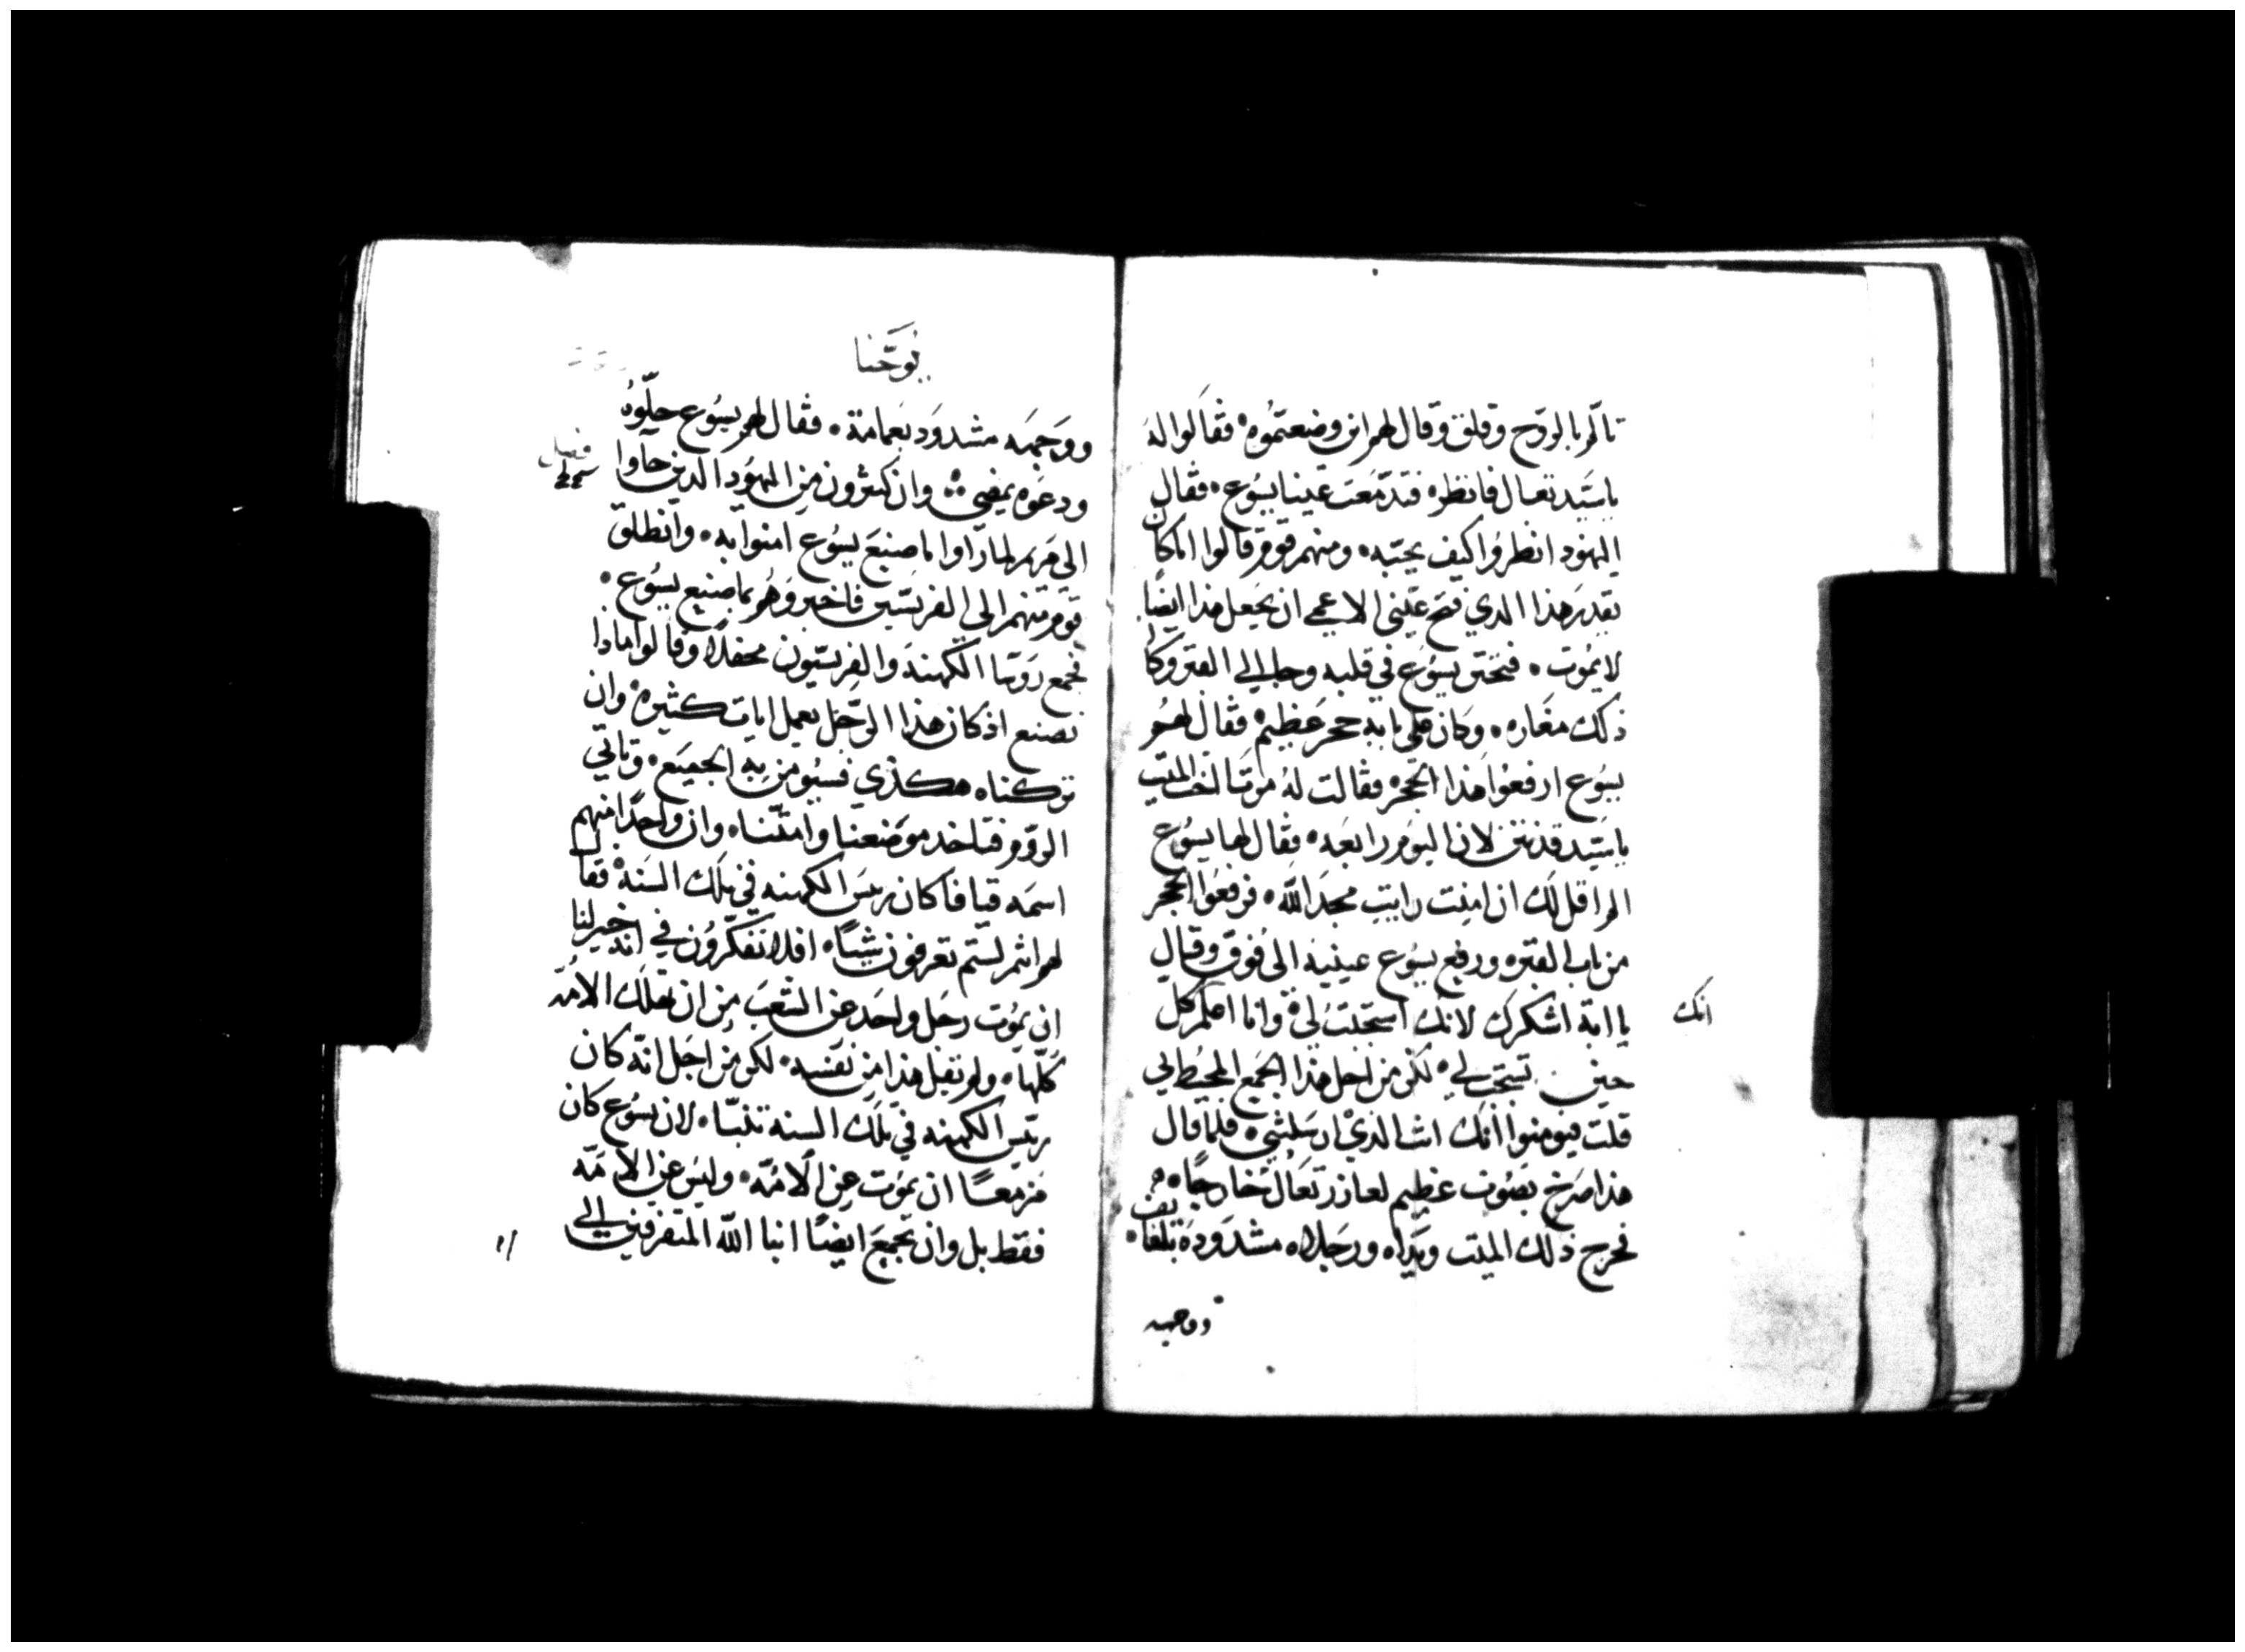 تالم بالروح وقلق وقال لهم اين وضعتموه فقالوا له
ياسيد تعال فانظره فتدمعت عينا يسوع فقال
اليهود انظروا كيف يحبه ومنهم قوم قالوا اماكان
يقدر هذا الدي فتح عيني الاعمي ان يجعل هذا ايضًا
لايموت فتحنن يسوع في قلبه وجا الي القبر وكان
ذلك مغاره وكان علي بابه حجر عظيم فقال لهم
يسوع ارفعوا هذا الحجر فقالت له مرتا اخت الميت
ياسيد قد نتن لان اليوم رابعه فقال لها يسوع
الم اقل لك ان امنت رايت مجد الله فرفعوا الحجر
من باب القبر ورفع يسوع عينيه الى فوق وقال
يا ابة اشكرك لانك استجبت لي وانا اعلم
انك
كل
حين تستجب لي لكن من اجل هذا الجمع المحيط بي
قلت ليومنوا انك انت الدي ارسلتني فلما قال
هذا صرخ بصوت عظيم لعازر تعال خارجًا
فخرج ذلك الميت ويداه ورجلاه مشدودة بلفايف
ووجهه
يوحنا
ووجهه مشدود بعمامة فقال لهم يسوع حلّوه
ودعوه يمضي وان كثيرون من اليهود الدين جاوا
فصل
الي مريم لما راوا ما صنع يسوع امنوا به وانطلق
قوم منهم الى الفريسيين فاخبروهم بما صنع يسوع
فجمع روسا الكهنة والفريسيون محفلا وقالوا مادا
نصنع اذ كان هذا الرجل يعمل ايات كثيره وان
تركناه هكذي فسيومن به الجميع وتاتي
الروم فتاخد موضعنا وامتنا وان واحدًا منهم
اسمه قيافا كان ريس الكهنه في تلك السنة فقال
لهم انتم لستم تعرفون شيًا افلا تفكرون في انه خير لنا
ان يموت رجل واحد عن الشعب من ان تهلك الامه
كلها ولم يقل هذا من نفسه لكن من اجل انه كان
ريس الكهنه في تلك السنه تنبّا لان يسوع كان
مزمعًا ان يموت عن الامّه وليس عن الامّه
فقط بل وان يجمع ايضًا ابنا الله المتفرقين الي